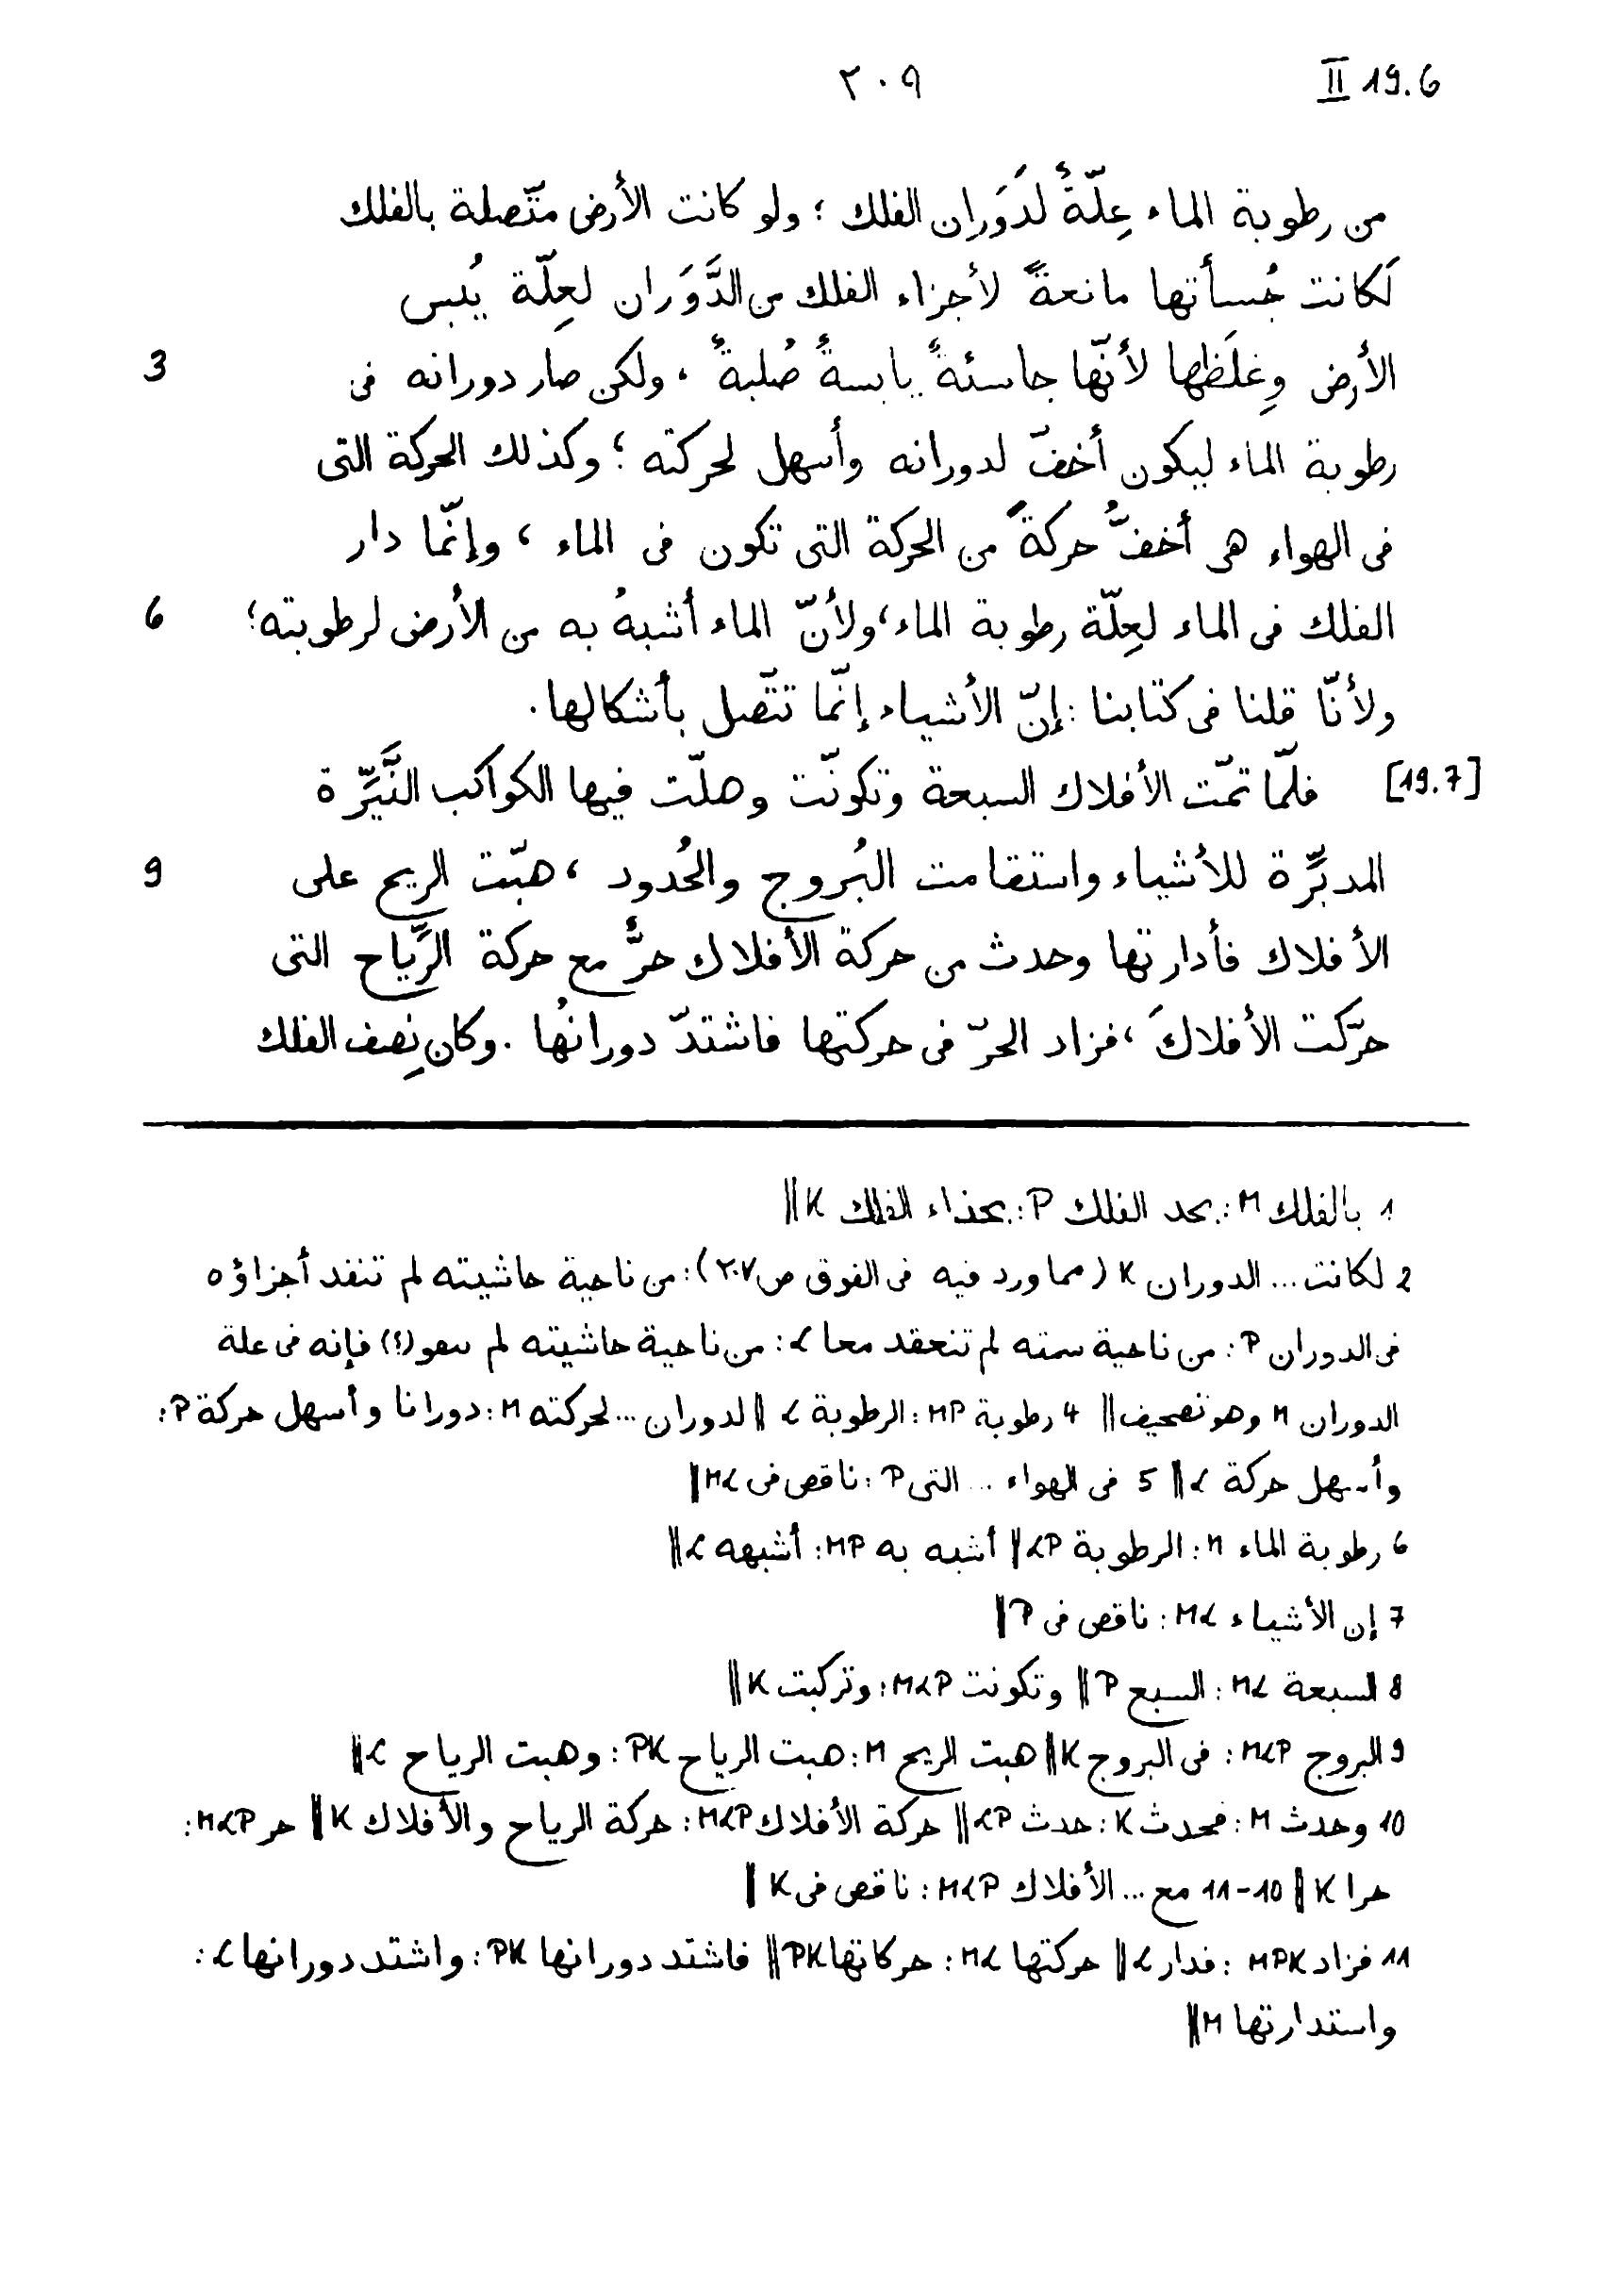 II 19.6 ٢٠٩
من رطوبة الماء عِلّةً لدَوَران الفلك ؛ ولو كانت الأرض متّصلة بالفلك
لَكانت جُسأتها مانعةً لأجزاء الفلك من الدَّوَران لعِلّة يُبس
الأرض وغِلَظها لأنّها جاسئةً يابسةً صُلبةً ، ولكن صار دورانه فى 3
رطوبة الماء ليكون أخفّ لدورانه وأسهل لحركته ؛ وكذلك الحركة التى
فى الهواء هى أخفُّ حركةً من الحركة التى تكون فى الماء ، وإنّما دار
الفلك فى الماء لعِلّة رطوبة الماء، ولأنّ الماء أشبهُ به من الأرض لرطوبته؛ 6
ولأنّا قلنا فى كتابنا : إنّ الأشياء إنّما تتّصل بأشكالها.
[19.7] فلمّا تمّت الأفلاك السبعة وتكونّت وحلّت فيها الكواكب النَّيِّرة
المدبِّرة للأشياء واستقامت البُروج والحُدود ، هبّت الريح على 9
الأفلاك فأدارتها وحدث من حركة الأفلاك حرٌّ مع حركة الرِّياح التى
حرّكت الأفلاكَ ، فزاد الحرّ فى حركتها فاشتدّ دورانُها . وكان نِصف الفلك
1 بالفلك M : بحد الفلك P : بحذاء الفلك K ||
2 لكانت ... الدوران K (مما ورد فيه فى الفوق ص ٢٠٧) : من ناحية حاشيته لم تنفد أجزاؤه
فى الدوران P : من ناحية سمته لم تنعقد معا L : من ناحية حاشيته لم سعو (؟) فإنه فى علة
الدوران M وهو تصحيف || 4 رطوبة MP : الرطوبة L || لدوران ... لحركته M : دورانا وأسهل حركة P :
وأسهل حركة L || 5 فى الهواء ... التى P : ناقص فى ML ||
6 رطوبة الماء M : الرطوبة LP || أشبه به MP : أشبهه L ||
7 إن الأشياء ML : ناقص فى P ||
8 السبعة ML : السبع P || وتكونت MLP : وتركبت K ||
9 البروج MLP : فى البروج K || هبت الريح M : هبت الرياح PK : وهبت الرياح L ||
10 وحدث M : فحدث K : حدث LP || حركة الأفلاك MLP : حركة الرياح والأفلاك K || حر MLP :
حرا K || 10-11 مع ... الأفلاك MLP : ناقص فى K ||
11 فزاد MPK : فدار L || حركتها ML : حركاتها PK || فاشتد دورانها PK : واشتد دورانها L :
واستدارتها M ||